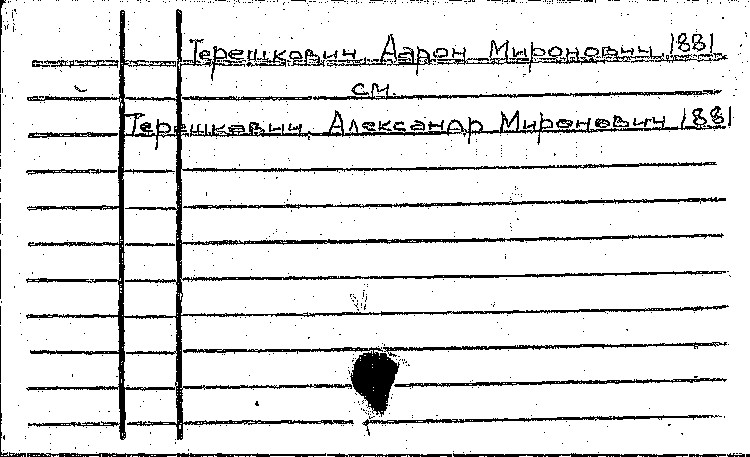 Терешкович Аарон Миронович 1881
см.
Терешкавич, Александр Миронович 1881